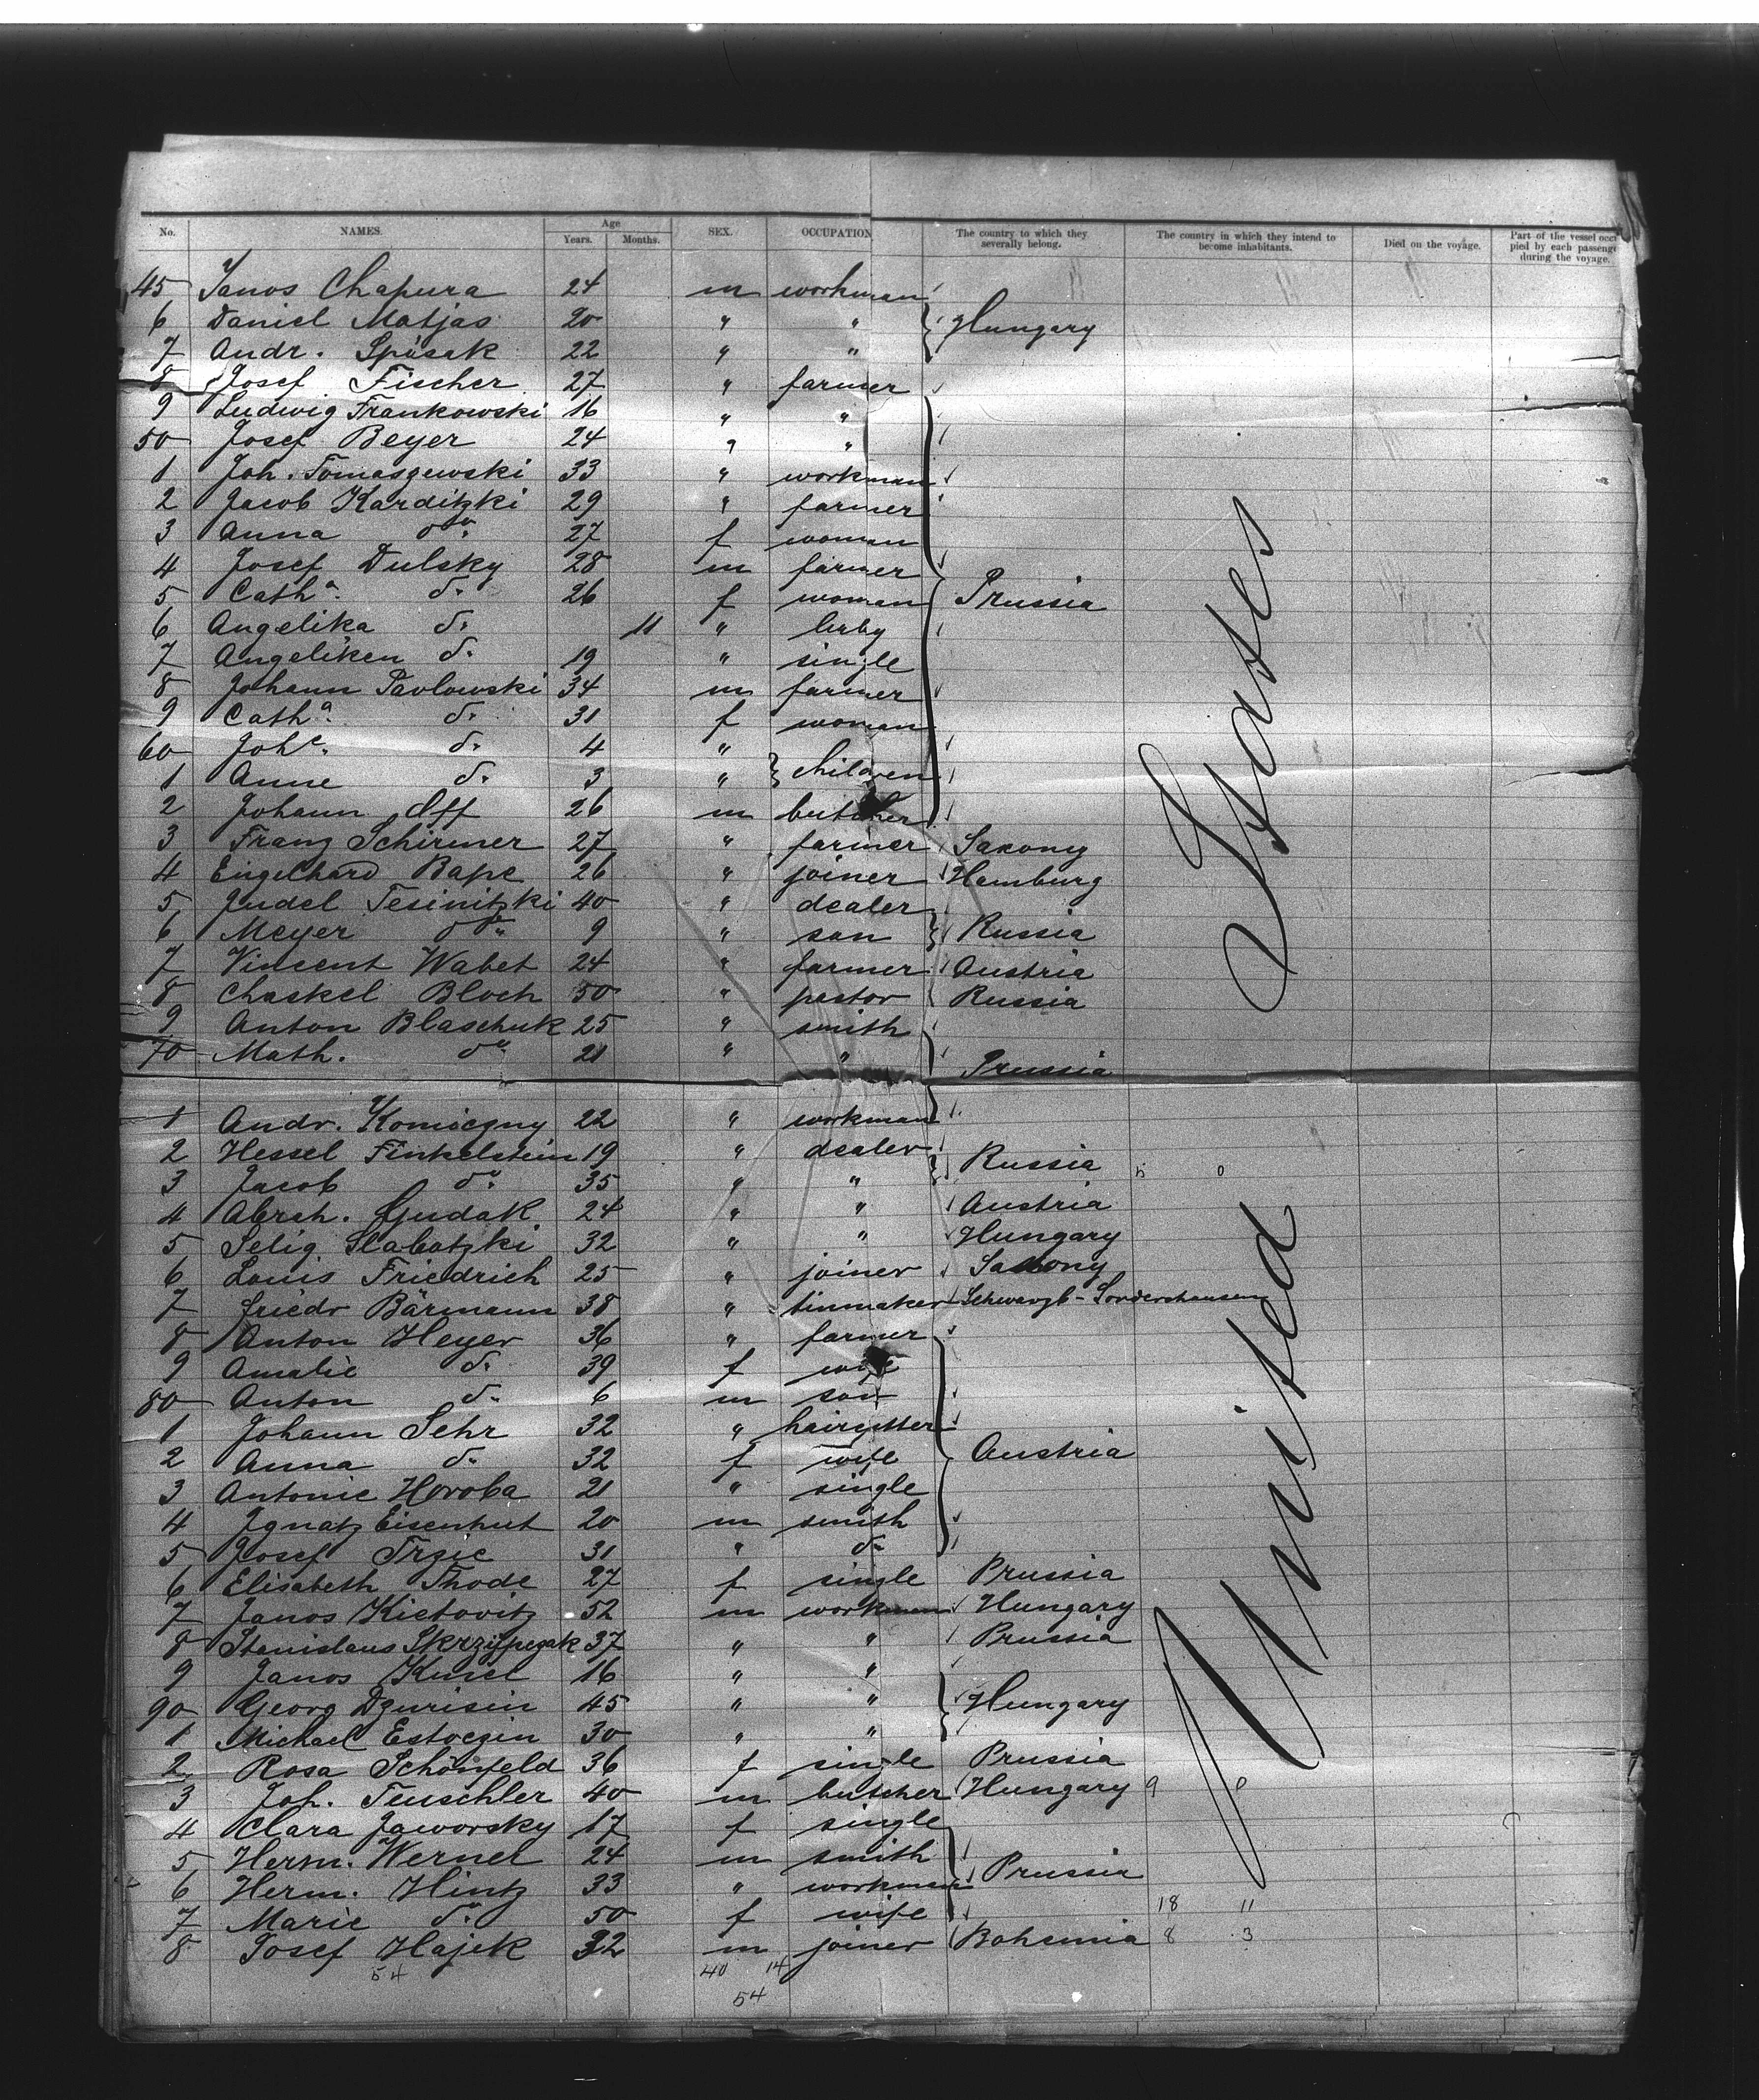 No. NAMES. Age Years. Months. SEX. OCCUPATION The country to which they severally belong. The country in which they intend to become inhabitants. Died on the voyage. Part of the vessel occupied by each passenger during the voyage.
45 Janos Chapura 24 m workman
6 Daniel Matjas 20 " " Hungary
7 Andr. Spisak 22 " "
8 Josef Fischer 27 " farmer
9 Ludwig Frankowski 16 " "
50 Josef Beyer 24 " "
1 Joh. Tomaszewski 33 " workman
2 Jacob Karditzki 29 " farmer
3 Anna do. 27 f woman
4 Josef Dulsky 28 m farmer
5 Catha. d. 26 f woman Prussia
6 Angelika d. 11 " baby
7 Angeliken d. 19 " single
8 Johann Pavlowski 34 m farmer
9 Catha. d. 31 f woman
60 Johe. d. 4 "
1 Anne d. 3 " children
2 Johann 26 m butcher
3 Franz Schirmer 27 " farmer Saxony
4 Engelhard Bape 26 " joiner Hamburg
5 Judel Tesinitzki 40 " dealer
6 Meyer do. 9 " son Russia
7 Vincent Wabet 24 " farmer Austria
8 Chaskel Bloch 50 " pastor Russia
9 Anton Blaschuk 25 " smith
70 Math. do. 21 " " Prussia
1 Andr. Komiczny 22 " workman
2 Hessel Finkelstein 19 " dealer
3 Jacob do. 35 " " Russia 5 0
4 Abrah. Gudak 24 " " Austria
5 Selig Slabotzki 32 " " Hungary
6 Louis Friedrich 25 " joiner Saxony
7 Friedr Bärmann 38 " tinmaker Schwarzb-Sondershausen
8 Anton Heyer 36 " farmer
9 Amalie d. 39 f wife
80 Anton d. 6 m son
1 Johann Sehr 32 " haircutter
2 Anna d. 32 f wife Austria
3 Antonie Horoba 21 " single
4 Ignatz Eisenhut 20 m smith
5 Josef Trzic 31 " do
6 Elisabeth Thode 27 f single Prussia
7 Janos Kictovitz 52 m workman Hungary
8 Stanislaus Skrzypczak 37 " " Prussia
9 Janos Kmiel 16 " "
90 Georg Dzurisin 45 " " Hungary
1 Michael Estoczin 30 " "
2 Rosa Schönfeld 36 f single Prussia
3 Joh. Teuschler 40 m butcher Hungary 9 0
4 Clara Jaworsky 17 f single
5 Herm. Werner 24 m smith Prussia
6 Herm. Hintz 33 " workman
7 Marie d. 50 f wife 18 11
8 Josef Hajek 32 m joiner Bohemia 8 3
54 40 14
54
United States